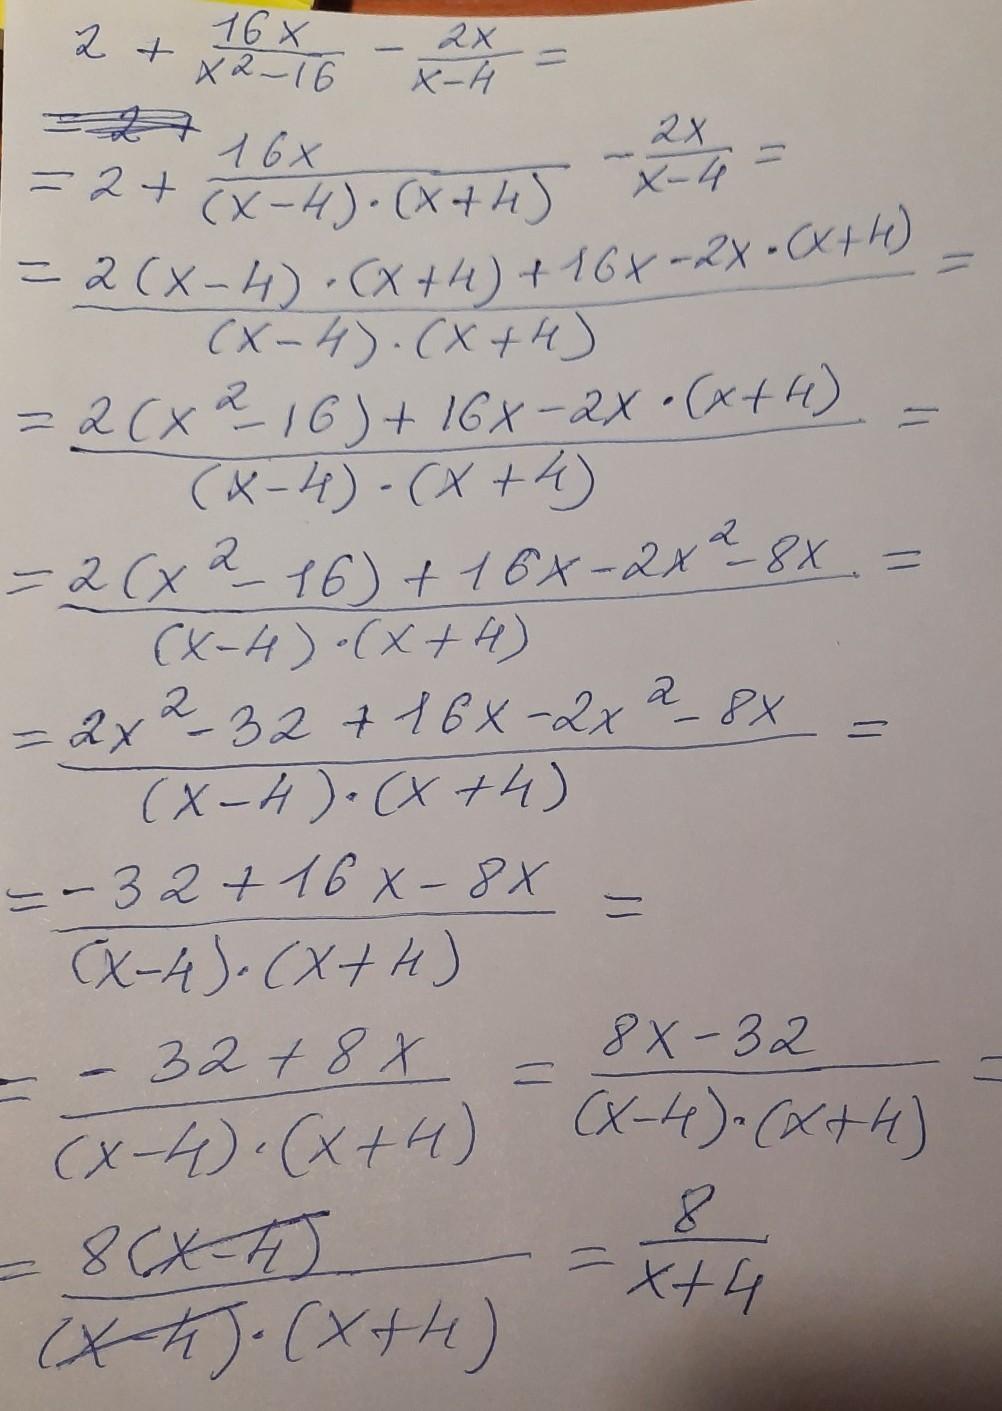 2 + 16x/(x²-16) - 2x/(x-4) =
= 2 + 16x/((x-4)·(x+4)) - 2x/(x-4) =
= (2(x-4)·(x+4)+16x-2x·(x+4))/((x-4)·(x+4)) =
= (2(x²-16)+16x-2x·(x+4))/((x-4)·(x+4)) =
= (2(x²-16)+16x-2x²-8x)/((x-4)·(x+4)) =
= (2x²-32+16x-2x²-8x)/((x-4)·(x+4)) =
= (-32+16x-8x)/((x-4)·(x+4)) =
= (-32+8x)/((x-4)·(x+4)) = (8x-32)/((x-4)·(x+4)) =
= 8(x-4)/((x-4)·(x+4)) = 8/(x+4)